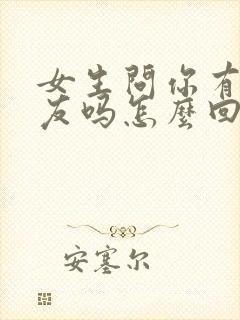 女生問你有
友吗怎麼回
安塞尔